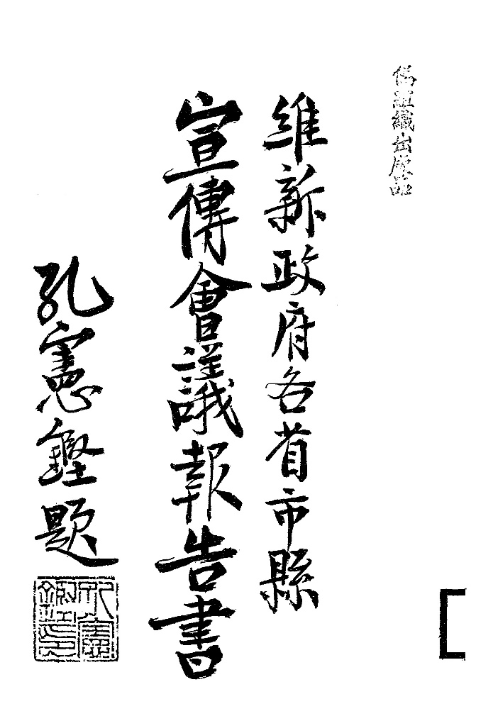 偽組織出版品
維新政府各省市縣
宣傳會議報告書
孔憲鏗題